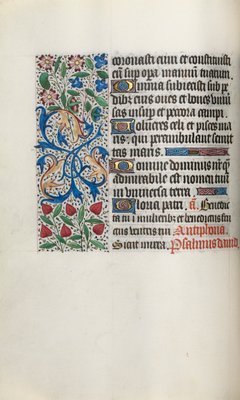 coronasti eum et constituisti
eū sup opa manuū tuarum.
Omnia subiecisti sub pe
dibz eius oues et boues uniuͥ
sas insup et pecora campi.
Volucres celi et pisces ma
ris, qui perambulant semi
tas maris.
Domine dominus nr̄ q̄
admirabile est nomen tuū
in vniuersa terra.
Gloria patri. a. Benedic
ta tu i mulieribz et benedictus fru
ctus uentris tui Antiphona.
Sicut mirra. Psalmus dauid.